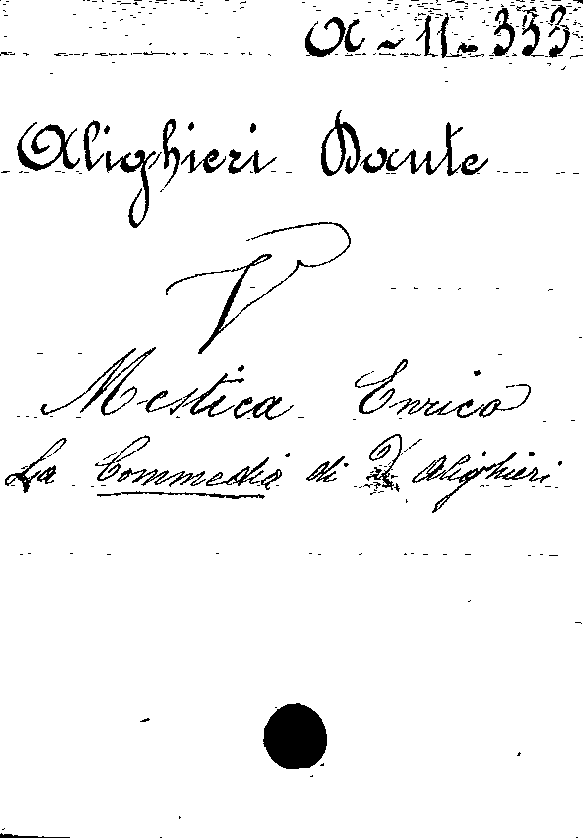 A-11-333
Alighieri Dante
V
Mestica Enrico
La Commedia di D Alighieri